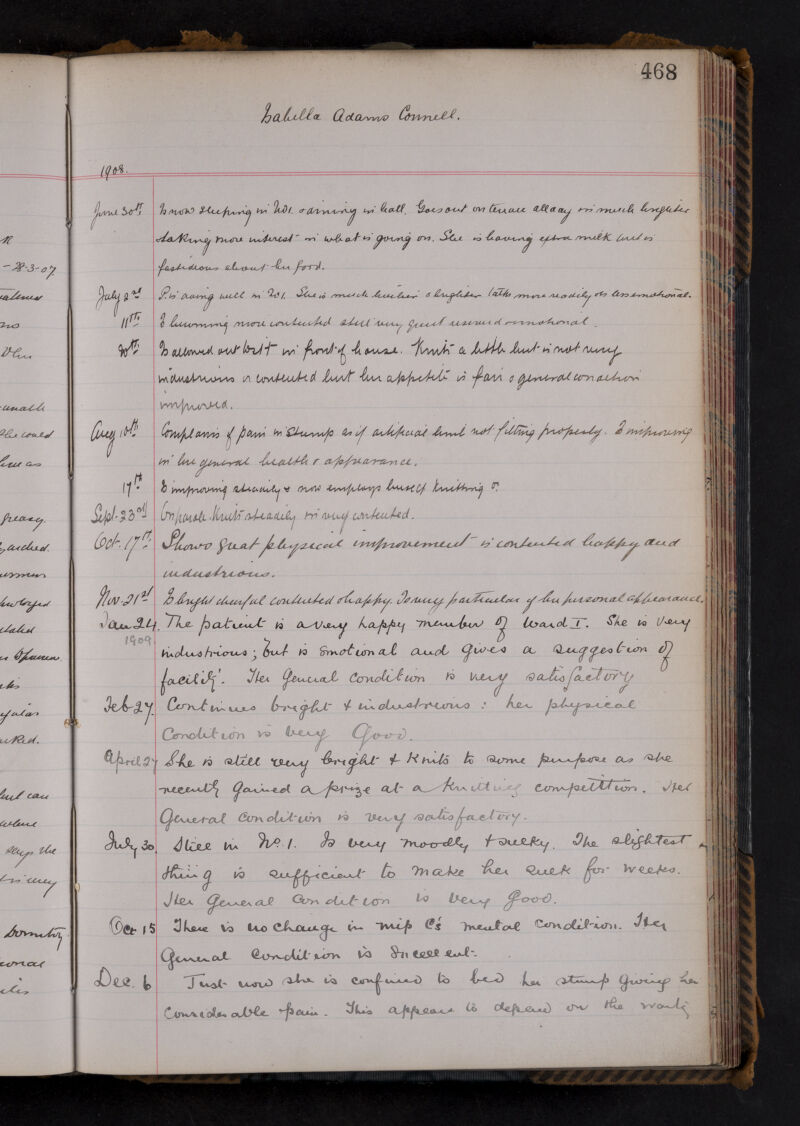 468
Isabella Adams Connell.
1908.
June 30th Is now sleeping in No1. & dining in hall. Goes out on terrace all day & is much brighter
taking more interest in what is going on. She is having extra milk but is
fastidious about her food.
July 2nd P. is doing well in No1. She is much livelier & brighter talks more readily & is less emotional.
11th Is becoming more contented still very quiet reserved & emotional.
30th Is allowed out in front of house. Knits a little but is not very
industrious or contented but her appetite is fair & general condition
improved.
Aug 10th Complains of pain in Stump as if artificial limb not fitting properly. Is improving
in her general health & appearance.
17th Is improving steadily & now employs herself knitting
Sept. 23rd On parole. Knits steadily & is very contented.
Oct. 17th Shows great physical improvement is contented happy and
industrious.
Nov. 21st Is bright cheerful contented & happy. Is very particular of her personal appearance.
Jan 24. The patient is a very happy member of Ward I. She is very
1909. industrious; but is emotional and gives a suggestion of
'facility'. Her General condition is very satisfactory
Feb 27. Continues bright & industrious: her physical
Condition is very Good.
April 27 She is still very bright & knits to some purpose as she
recently gained a prize at a knitting competition. Her
General condition is very satisfactory.
July 30. Still in No. 1. Is very moody & sulky. The slightest
thing is sufficient to make her sulk for weeks.
Her General condition is very Good.
Oct 15 There is no change in Miss C's mental condition. Her
General Condition is Excellent.
Dec. 6 Just now she is confined to bed her stump giving her
Considerable pain. This appears to depend on the
-28-3-07
unable
she could
greasy
but can
says the
Dormitory